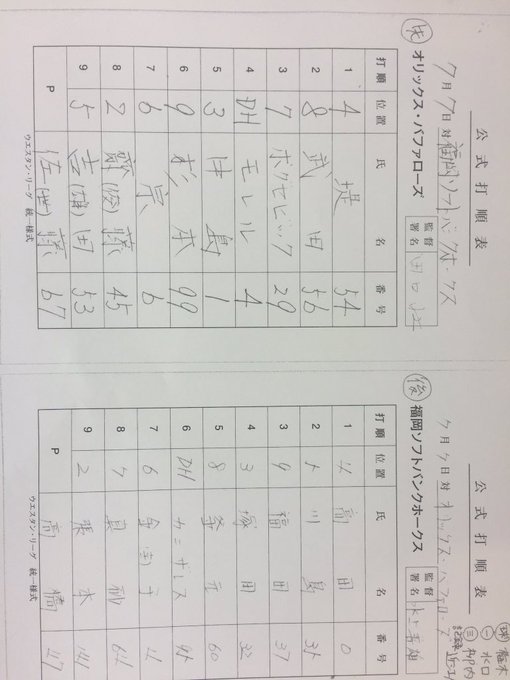 公式打順表
7月7日 対 福岡ソフトバンクホークス
先 オリックス・バファローズ 監督署名 田口 壮
打順 位置 氏名 番号
1 4 堤 54
2 8 武田 56
3 7 ボグセビック 29
4 DH モレル 4
5 3 中島 1
6 9 杉本 99
7 6 宗 6
8 2 齊(俊)藤 45
9 5 吉(雄)田 53
P 佐(世)藤 67
ウエスタン・リーグ 統一様式
公式打順表
7月7日 対 オリックス・バファローズ
後 福岡ソフトバンクホークス 監督署名 水上善雄
打順 位置 氏名 番号
1 高田 0
2 川島
3 福田 37
4 3 塚田
5 8 釜元 60
6 DH カニザレス
7 6 金子
8 真砂
9 2 張本
P 高橋 47
ウエスタン・リーグ 統一様式
球
一 水口
三 柳内
記録